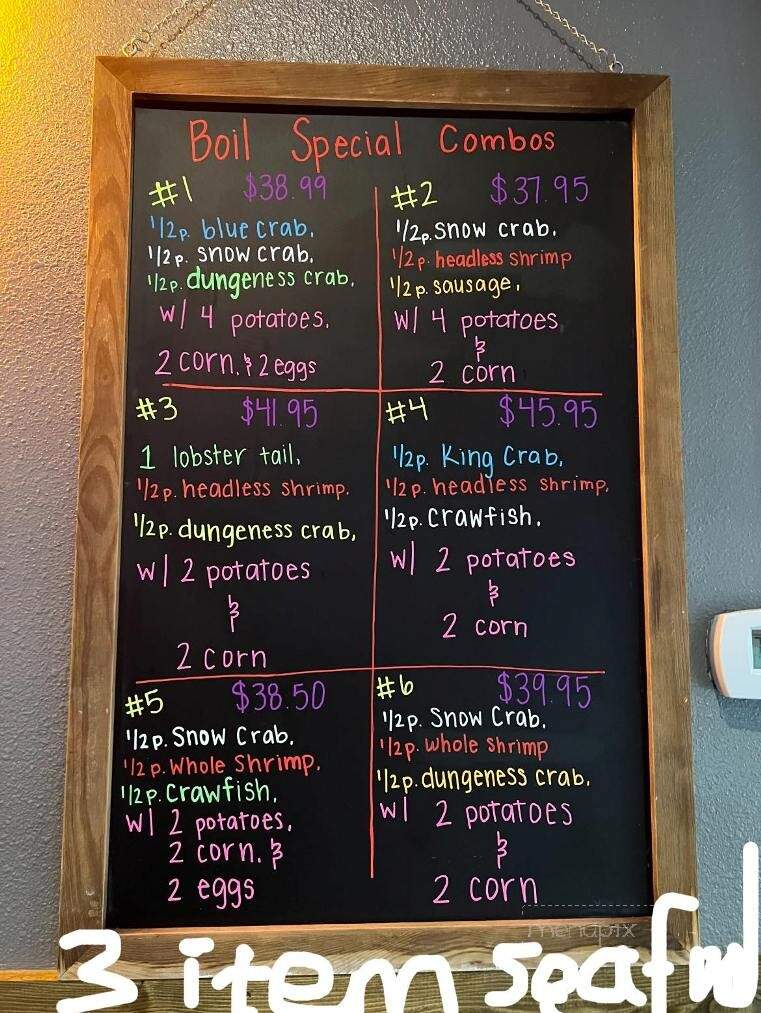 Boil Special Combos
#1 $38.99
1/2p. blue crab,
1/2p. snow crab,
1/2p. dungeness crab,
w/ 4 potatoes,
2 corn. & 2 eggs
#2 $37.95
1/2p. snow crab,
1/2p. headless shrimp
1/2p. sausage,
w/ 4 potatoes
&
2 corn
#3 $41.95
1 lobster tail,
1/2p. headless shrimp.
1/2p. dungeness crab,
w/ 2 potatoes
&
2 corn
#4 $45.95
1/2p. King Crab,
1/2p. headless shrimp,
1/2p. crawfish,
w/ 2 potatoes
&
2 corn
#5 $38.50
1/2p. Snow Crab,
1/2p. Whole Shrimp,
1/2p. Crawfish,
w/ 2 potatoes,
2 corn. &
2 eggs
#6 $39.95
1/2p. Snow Crab,
1/2p. Whole Shrimp
1/2p. dungeness crab,
w/ 2 potatoes
&
2 corn
menupix
3 item